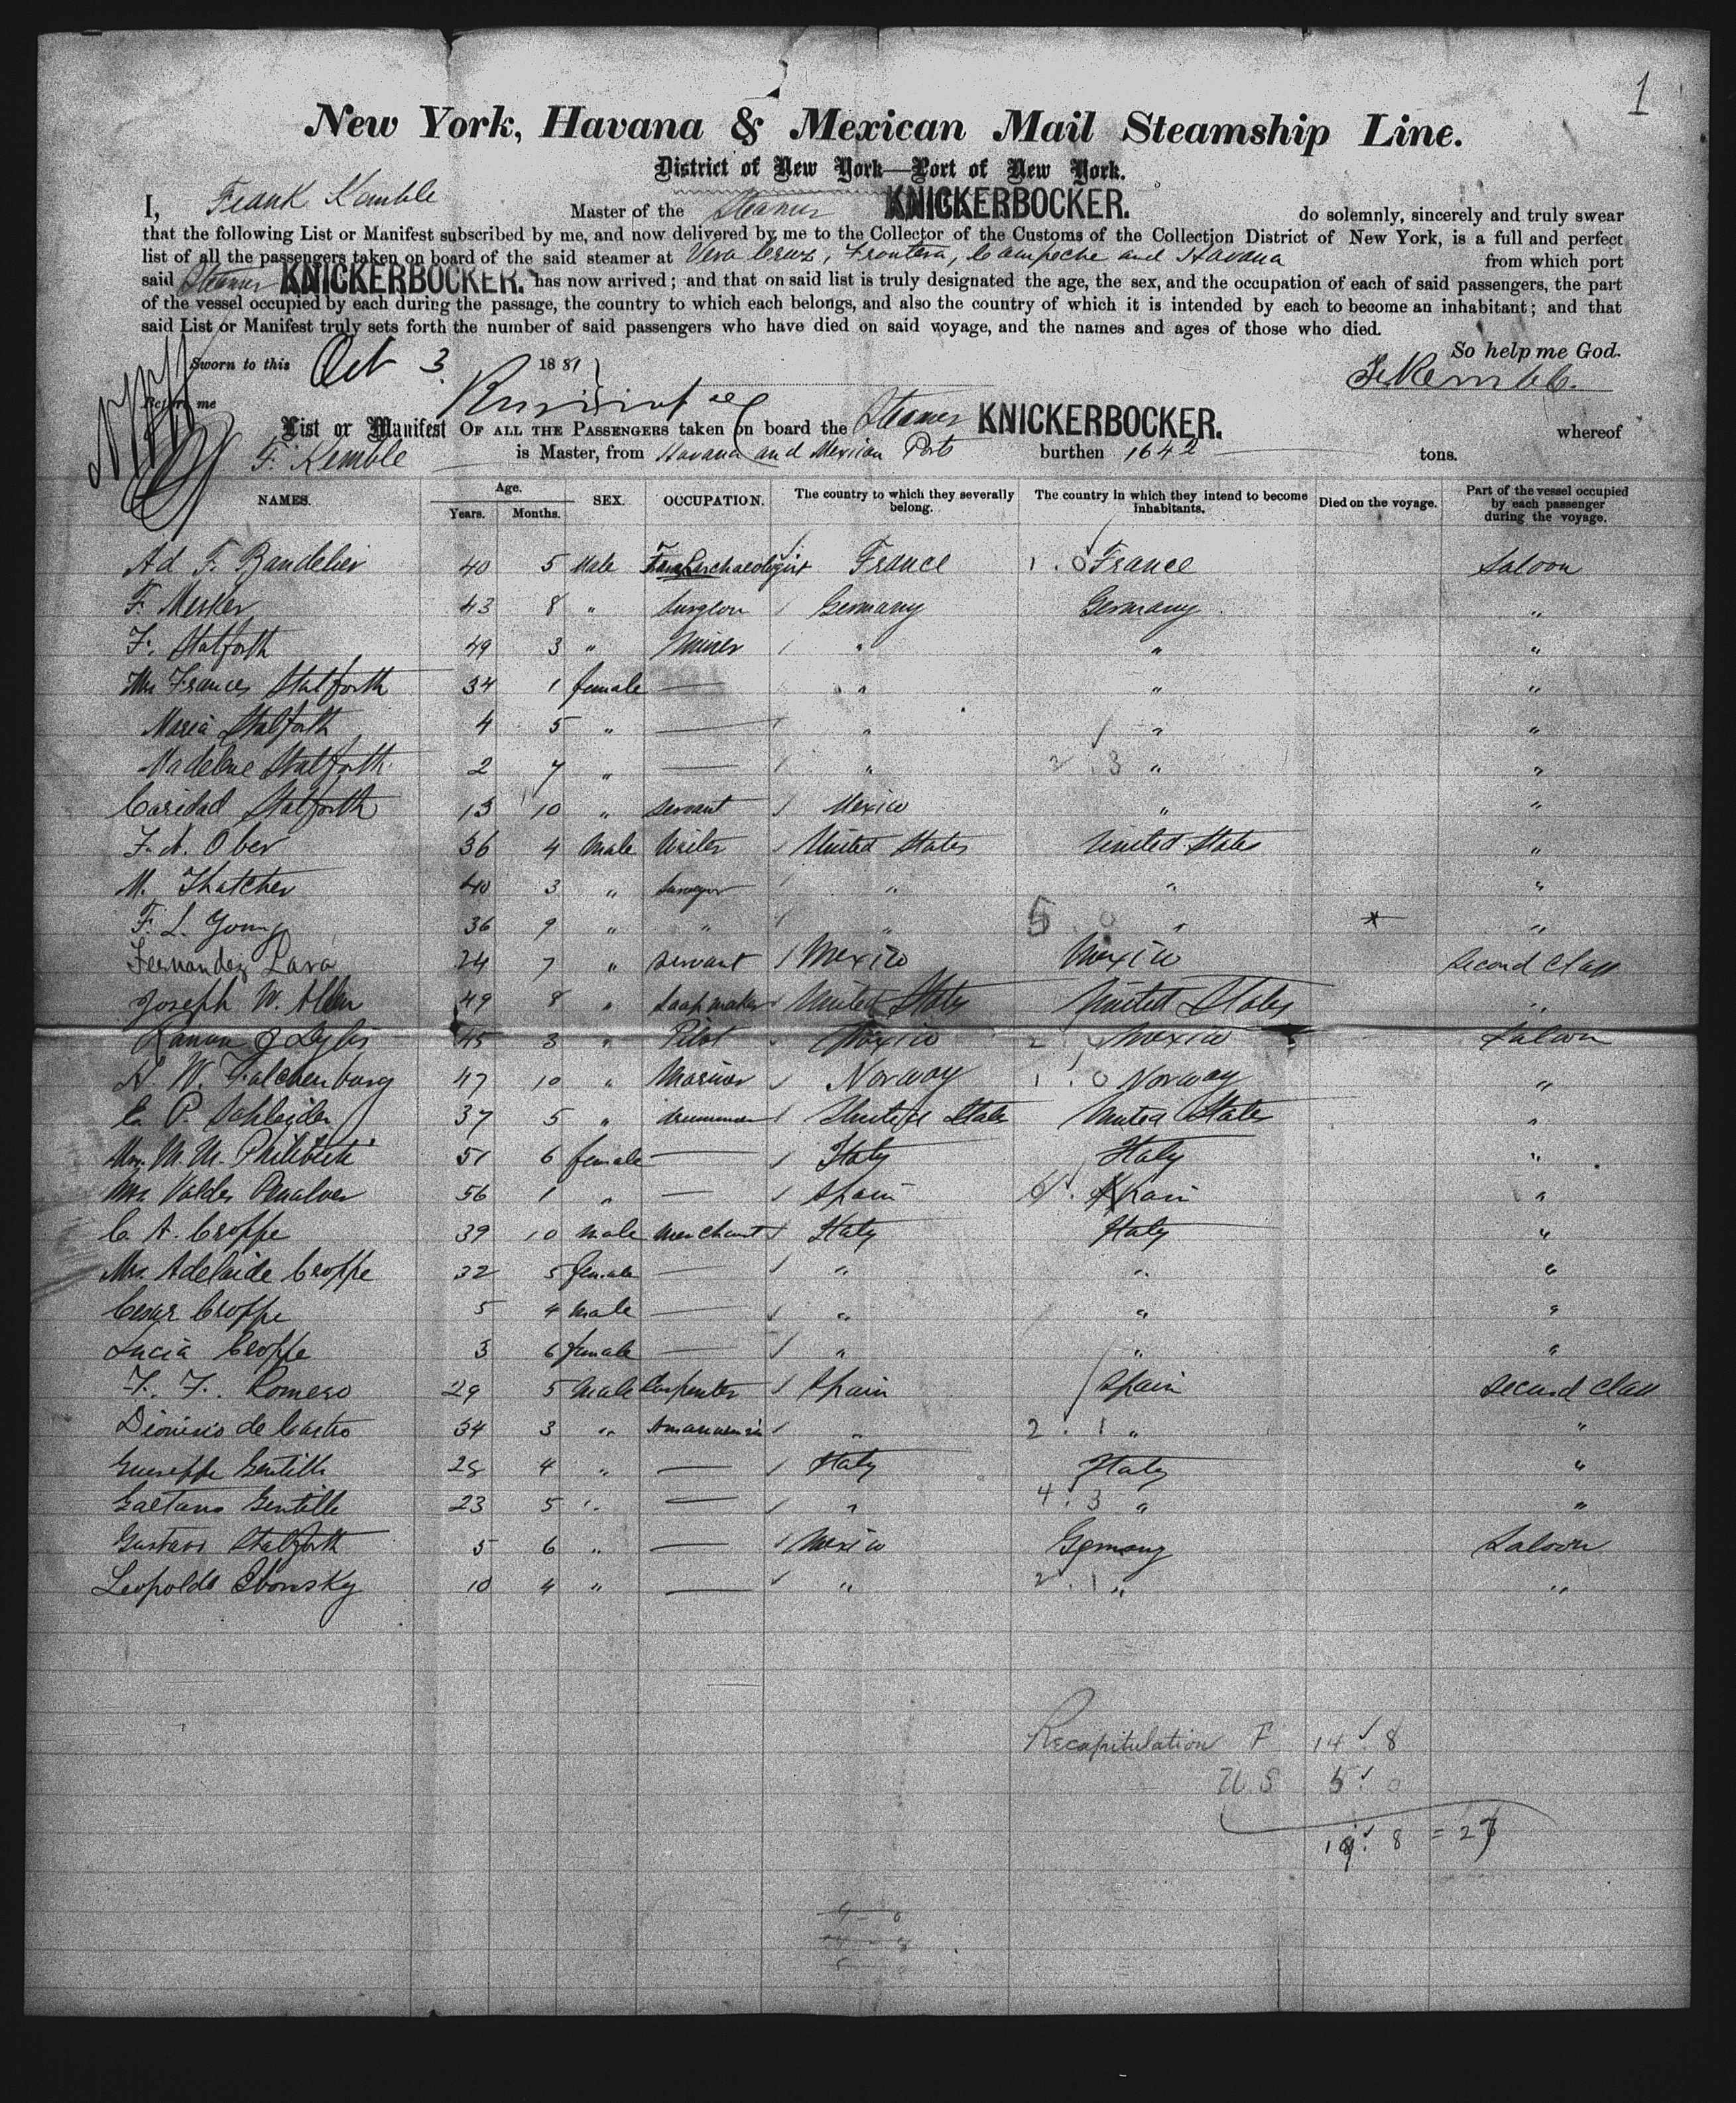 1
New York, Havana & Mexican Mail Steamship Line.
District of New York—Port of New York.
I, Frank Kemble Master of the Steamer KNICKERBOCKER. do solemnly, sincerely and truly swear
that the following List or Manifest subscribed by me, and now delivered by me to the Collector of the Customs of the Collection District of New York, is a full and perfect
list of all the passengers taken on board of the said steamer at Vera Cruz, Frontera, Campeche and Havana from which port
said Steamer KNICKERBOCKER. has now arrived; and that on said list is truly designated the age, the sex, and the occupation of each of said passengers, the part
of the vessel occupied by each during the passage, the country to which each belongs, and also the country of which it is intended by each to become an inhabitant; and that
said List or Manifest truly sets forth the number of said passengers who have died on said voyage, and the names and ages of those who died.
So help me God.
Sworn to this Oct 3 1881
F. Kemble
Before me
List or Manifest OF ALL THE PASSENGERS taken on board the Steamer KNICKERBOCKER. whereof
F. Kemble is Master, from Havana and Mexican Ports burthen 1642 tons.
NAMES. Age. Years. Months. SEX. OCCUPATION. The country to which they severally belong. The country in which they intend to become inhabitants. Died on the voyage. Part of the vessel occupied by each passenger during the voyage.
Ad F. Bandelier 40 5 Male archaeologist France 1 . 0 France Saloon
F. Merker 43 8 " Surgeon Germany Germany "
F. Stalforth 49 3 " Miner " " "
Mrs Frances Stalforth 34 1 female — " " "
Maria Stalforth 4 5 " — " " "
Madelene Stalforth 2 7 " — " 2 . 3 " "
Caridad Stalforth 13 10 " servant Mexico " "
F. A. Ober 36 4 Male Writer United States United States "
M. Thatcher 40 3 " Surveyor " " "
F. L. Young 36 9 " " " 5 . 0 " "
Fernandez Lara 24 7 " servant Mexico Mexico Second Class
Joseph W. Allen 49 8 " Soap maker United States United States "
Ramon 45 3 " Pilot Mexico 2 Mexico Saloon
A. W. Falchenburg 47 10 " Mariner Norway 1 . 0 Norway "
E. P. Schleyden 37 5 " drummer United States United States "
Mrs. M. M. 51 6 female — Italy Italy "
Mrs Valdes Penalver 56 1 " — Spain Spain "
C. A. Croppe 39 10 male merchant Italy Italy "
Mrs. Adelaide Croppe 32 5 female — " " "
Cesar Croppe 5 4 Male — " " "
Lucia Croppe 3 6 female — " " "
F. F. Romero 29 5 Male Carpenter Spain Spain Second Class
Dionisio de Castro 34 3 " Amanuensis " 2 . 1 " "
Guiseppe Gentille 28 4 " — Italy Italy "
Gaetano Gentille 23 5 " — " 4 . 3 " "
Gustavo Stalforth 5 6 " — Mexico Germany Saloon
Leopoldo Ebonsky 10 4 " — " 2 . 1 " "
Recapitulation F 14 . 8
U.S 5 . 0
19 . 8 = 27